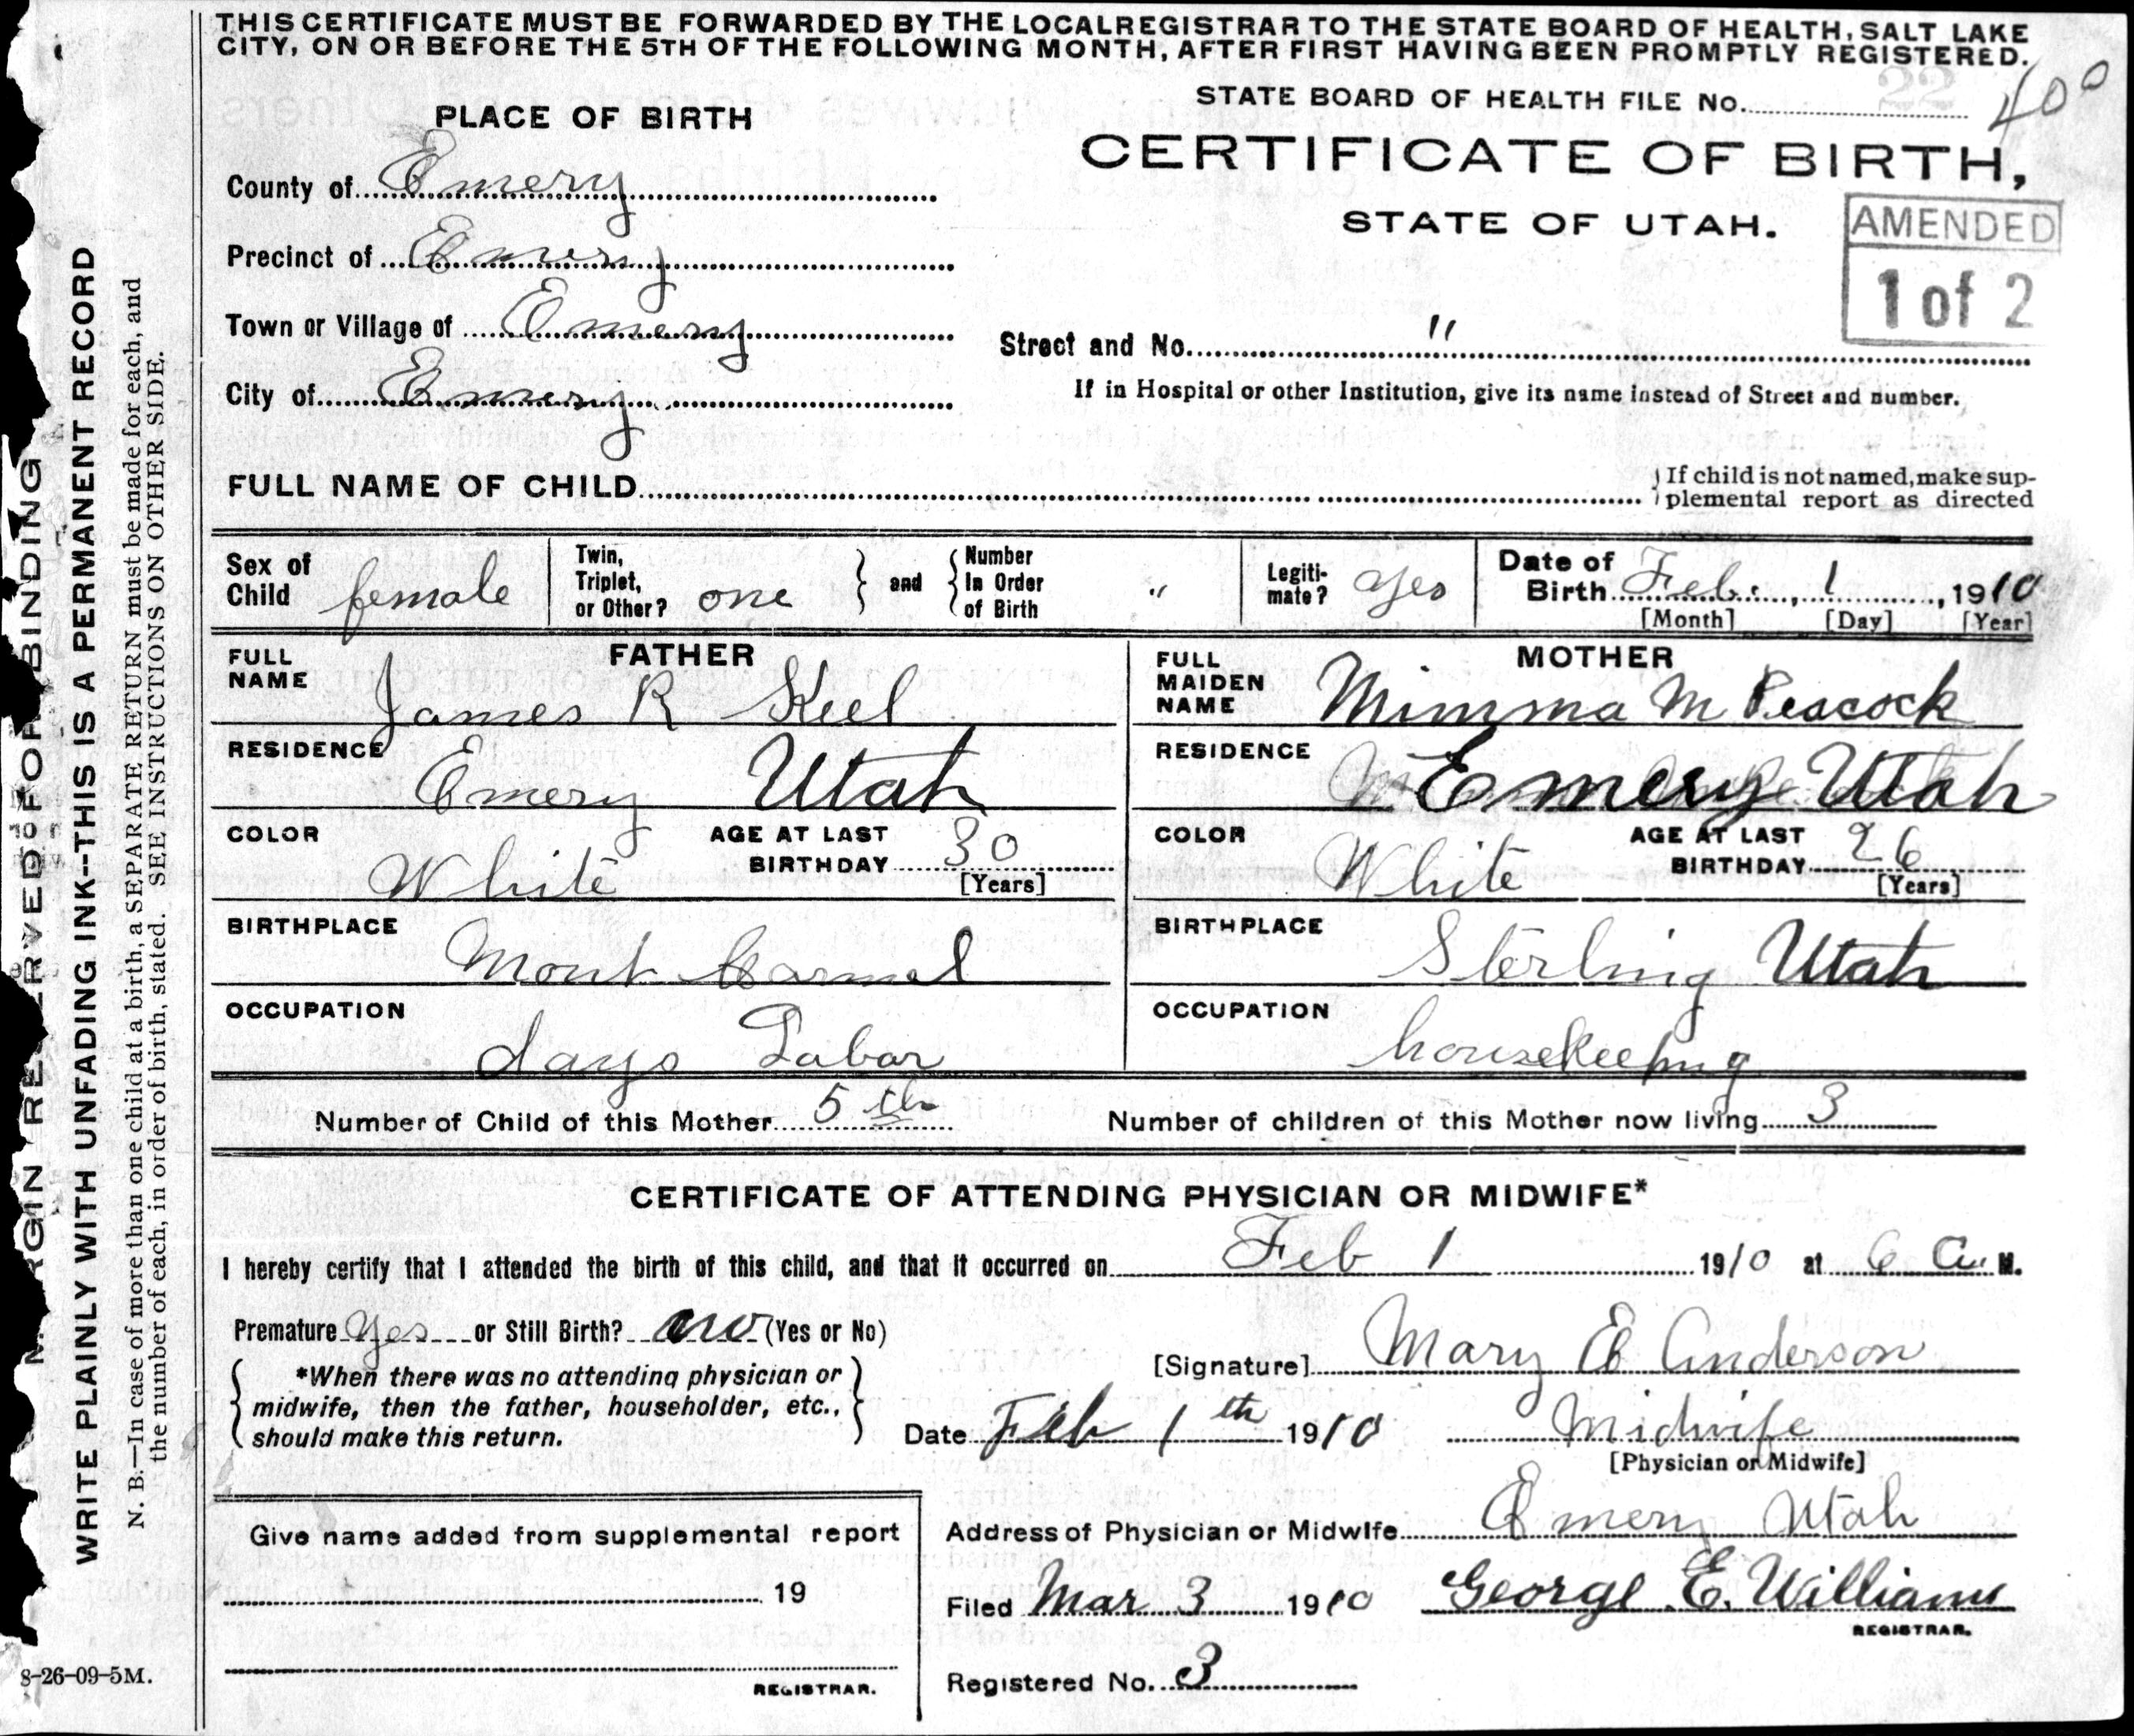 THIS CERTIFICATE MUST BE FORWARDED BY THE LOCAL REGISTRAR TO THE STATE BOARD OF HEALTH, SALT LAKE
CITY, ON OR BEFORE THE 5TH OF THE FOLLOWING MONTH, AFTER FIRST HAVING BEEN PROMPTLY REGISTERED.
STATE BOARD OF HEALTH FILE No. 22 400
PLACE OF BIRTH
CERTIFICATE OF BIRTH,
STATE OF UTAH.
AMENDED
1 of 2
County of Emery
Precinct of Emery
Town or Village of Emery
Street and No. "
City of Emery
If in Hospital or other Institution, give its name instead of Street and number.
FULL NAME OF CHILD
If child is not named, make sup-
plemental report as directed
Sex of Child female
Twin, Triplet, or Other? one and Number In Order of Birth "
Legiti-mate? yes
Date of Birth Feb. 1, 1910
[Month] [Day] [Year]
FATHER
FULL NAME James R Kiel
RESIDENCE Emery Utah
COLOR White AGE AT LAST BIRTHDAY 30
[Years]
BIRTHPLACE Mont Carmel
OCCUPATION days Labor
MOTHER
FULL MAIDEN NAME Mimma M Peacock
RESIDENCE Emery Utah
COLOR White AGE AT LAST BIRTHDAY 26
[Years]
BIRTHPLACE Sterling Utah
OCCUPATION housekeeping
Number of Child of this Mother 5th Number of children of this Mother now living 3
CERTIFICATE OF ATTENDING PHYSICIAN OR MIDWIFE*
I hereby certify that I attended the birth of this child, and that it occurred on Feb 1 1910 at 6 A. M.
Premature yes or Still Birth? no (Yes or No)
*When there was no attending physician or
midwife, then the father, householder, etc.,
should make this return.
[Signature] Mary E Anderson
Date Feb 1th 1910 Midwife
[Physician or Midwife]
Give name added from supplemental report
19
REGISTRAR.
Address of Physician or Midwife Emery Utah
Filed Mar 3 1910 George E. Williams
REGISTRAR.
Registered No. 3
8-26-09-5M.
WRITE PLAINLY WITH UNFADING INK--THIS IS A PERMANENT RECORD
N. B.—In case of more than one child at a birth, a SEPARATE RETURN must be made for each, and
the number of each, in order of birth, stated. SEE INSTRUCTIONS ON OTHER SIDE.